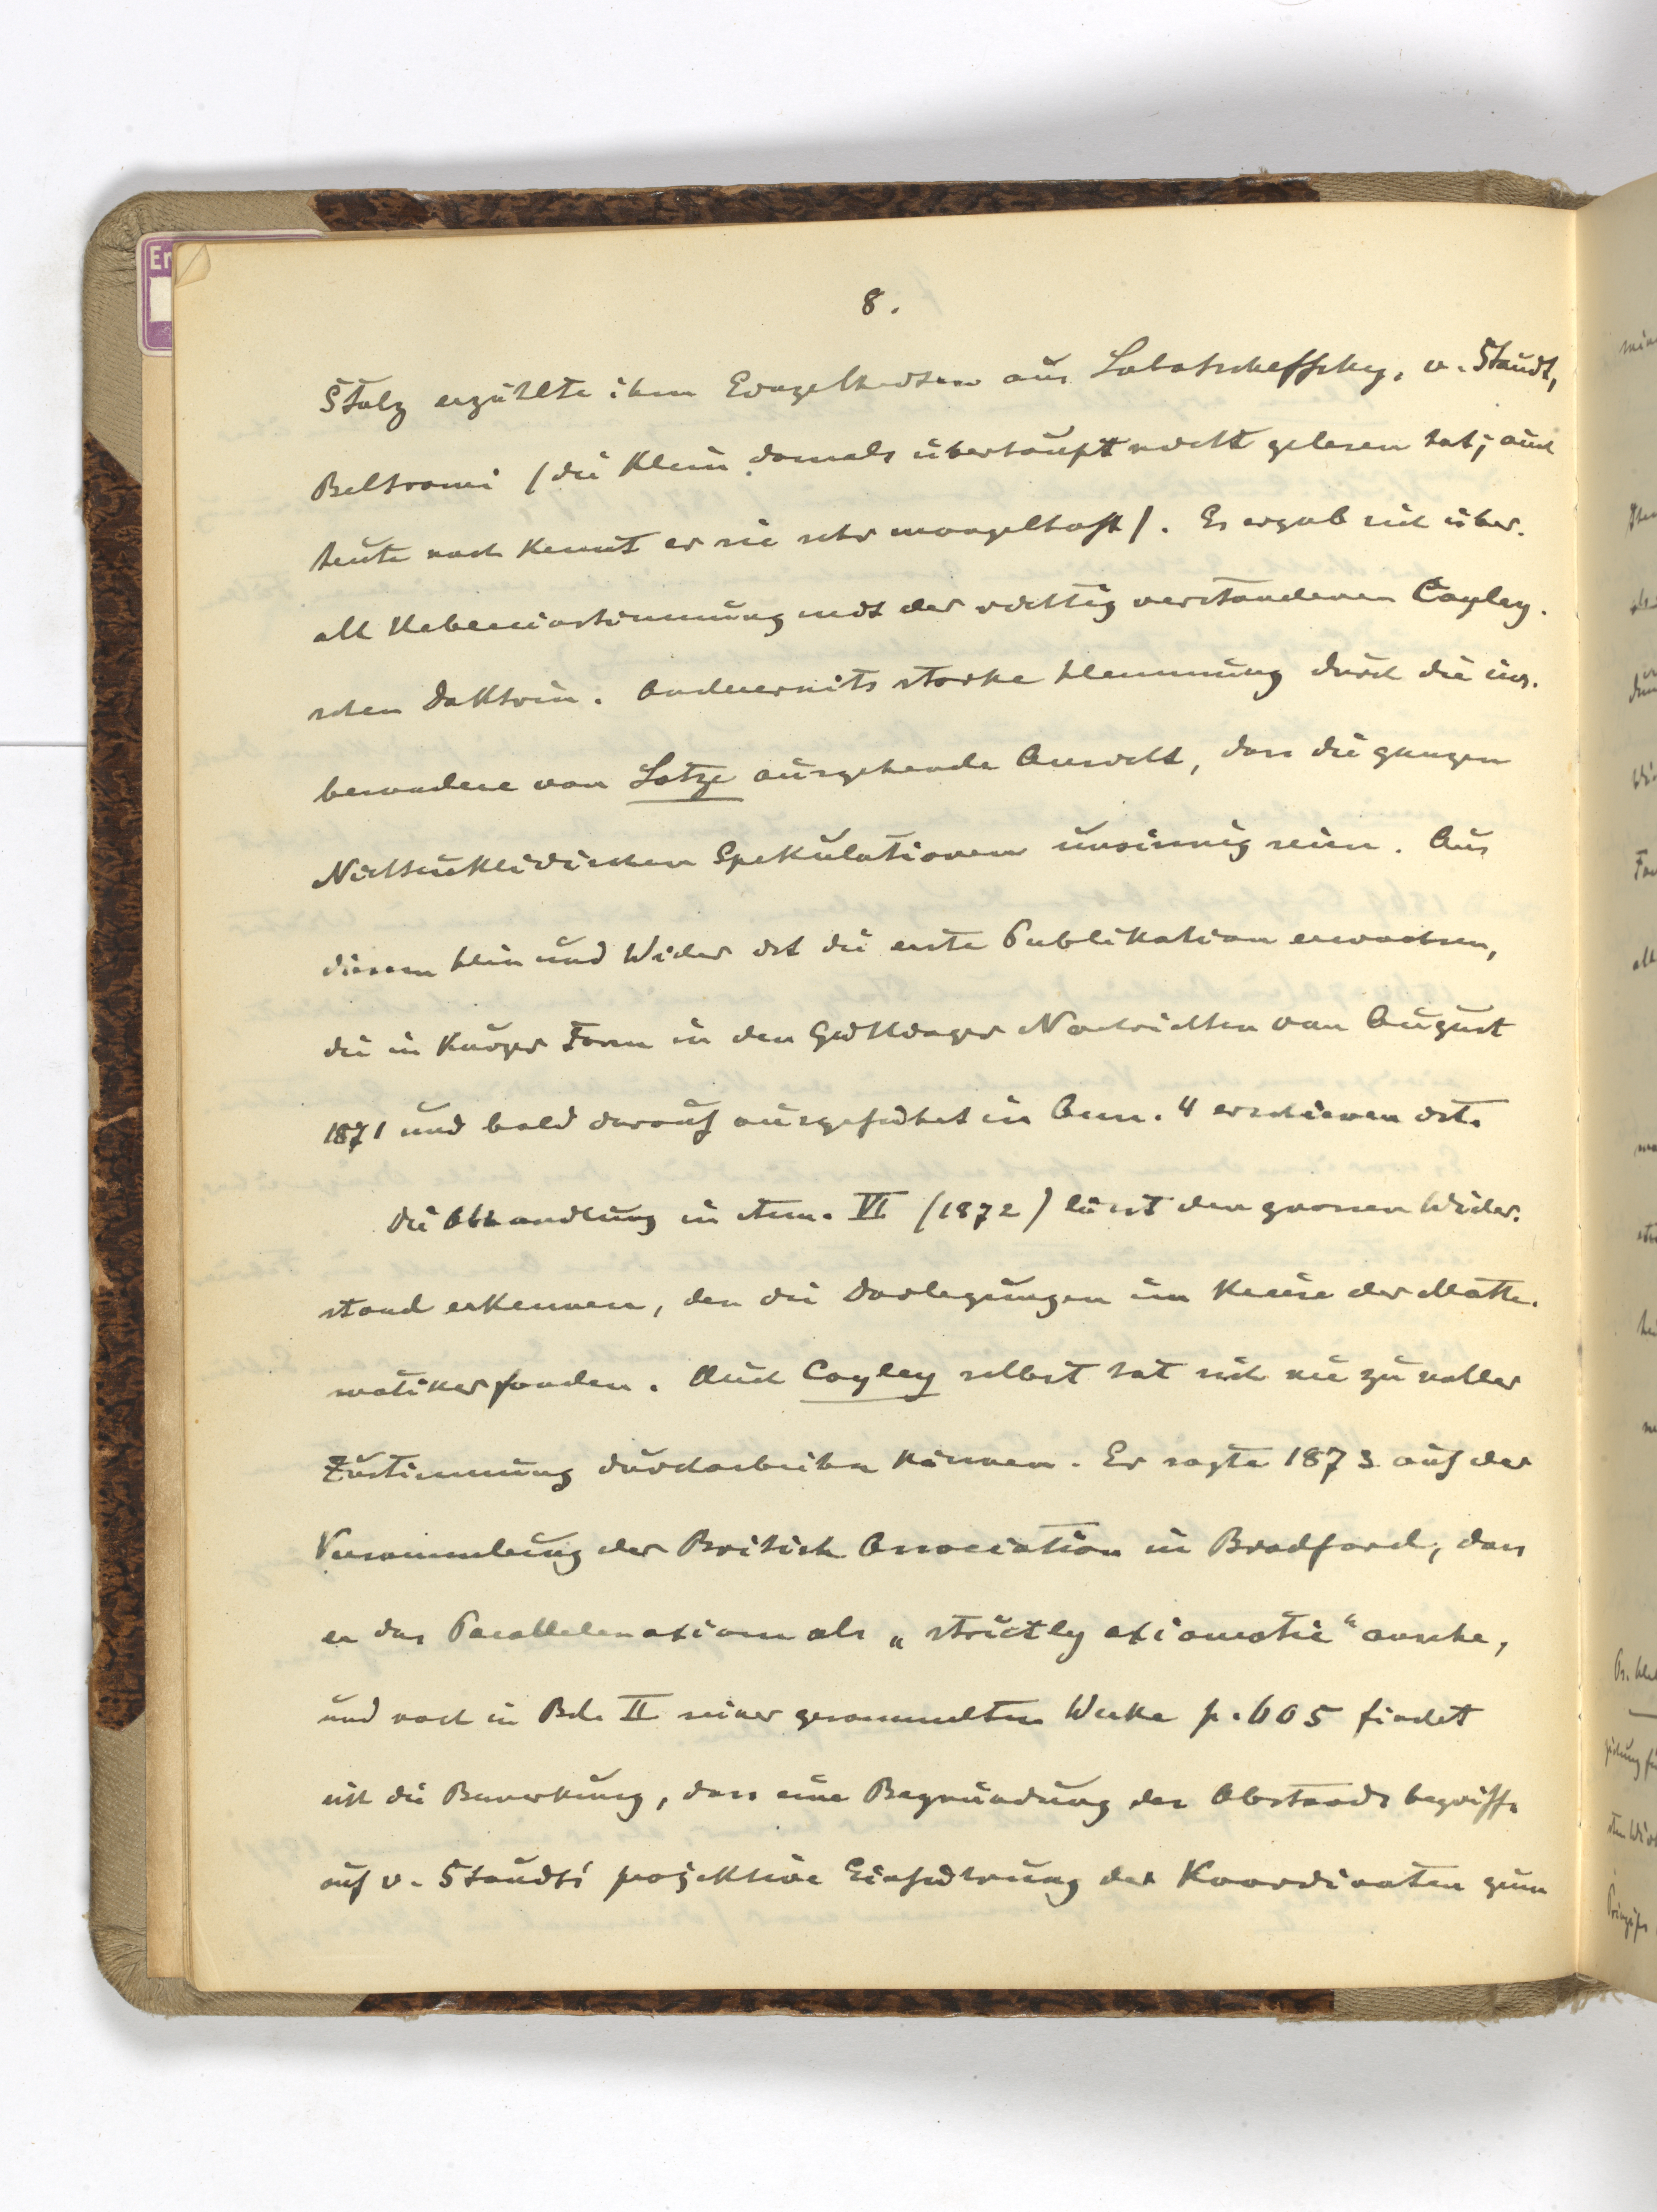 8.
Stolz erzählte ihm Einzelheiten aus Lobatscheffsky, v. Staudt,
Beltrami (die Klein damals überhaupt nicht gelesen hat; auch
heute noch kennt er sie sehr mangelhaft). Es ergab sich über-
all Uebereinstimmung mit der richtig verstandenen Cayley-
schen Doktrin. Andererseits starke Hemmung durch die ins-
besondere von Lotze ausgehende Ansicht, dass die ganzen
Nichteuklidischen Spekulationen unsinnig seien. Aus
diesem Hin und Wider ist die erste Publikation erwachsen,
die in kurzer Form in den Göttinger Nachrichten von August
1871 und bald darauf ausgeführt in Ann. 4 erschienen ist.
Die Abhandlung in Ann. VI (1872) lässt den grossen Wider-
stand erkennen, den die Darlegungen im Kreise der Mathe-
matiker fanden. Auch Cayley selbst hat sich nie zu voller
Zustimmung durcharbeiten können. Er sagte 1873 auf der
Versammlung der British Association in Bradford, dass
er das Parallelenaxiom als „strictly axiomatic“ ansehe,
und noch in Bd. II seiner gesammelten Werke p. 605 findet
sich die Bemerkung, dass eine Begründung des Abstandsbegriffs
auf v. Staudts' projektive Einführung der Koordinaten zum